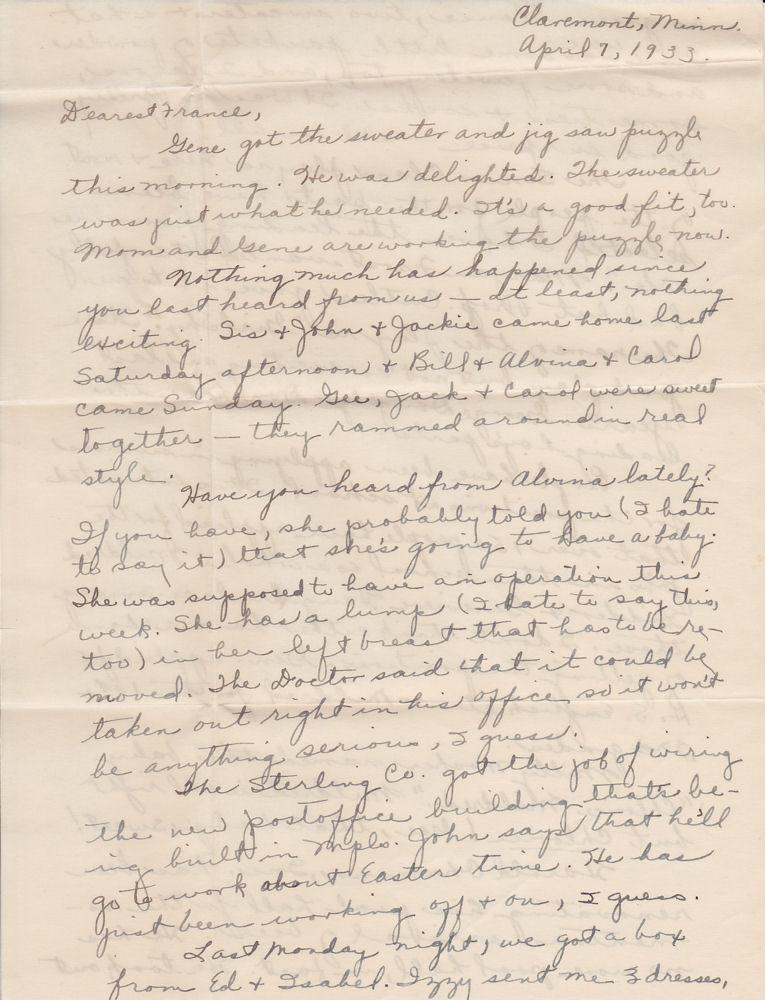 Claremont, Minn.
April 7, 1933.
Dearest France,
Gene got the sweater and jig saw puzzle
this morning. He was delighted. The sweater
was just what he needed. It's a good fit, too.
Mom and Gene are working the puzzle now.
Nothing much has happened since
you last heard from us — at least, nothing
exciting. Sis + John + Jackie came home last
Saturday afternoon + Bill + Alvina + Carol
came Sunday. Gee, Jack + Carol were sweet
together — they rammed around in real
style.
Have you heard from Alvina lately?
If you have, she probably told you (I hate
to say it) that she's going to have a baby.
She was supposed to have an operation this
week. She has a lump (I hate to say this,
too) in her left breast that has to be re-
moved. The Doctor said that it could be
taken out right in his office so it won't
be anything serious, I guess.
The Sterling Co. got the job of wiring
the new postoffice building that's be-
ing built in Mpls. John says that he'll
go to work about Easter time. He has
just been working off + on, I guess.
Last Monday night, we got a box
from Ed + Isabel. Izzy sent me 3 dresses,